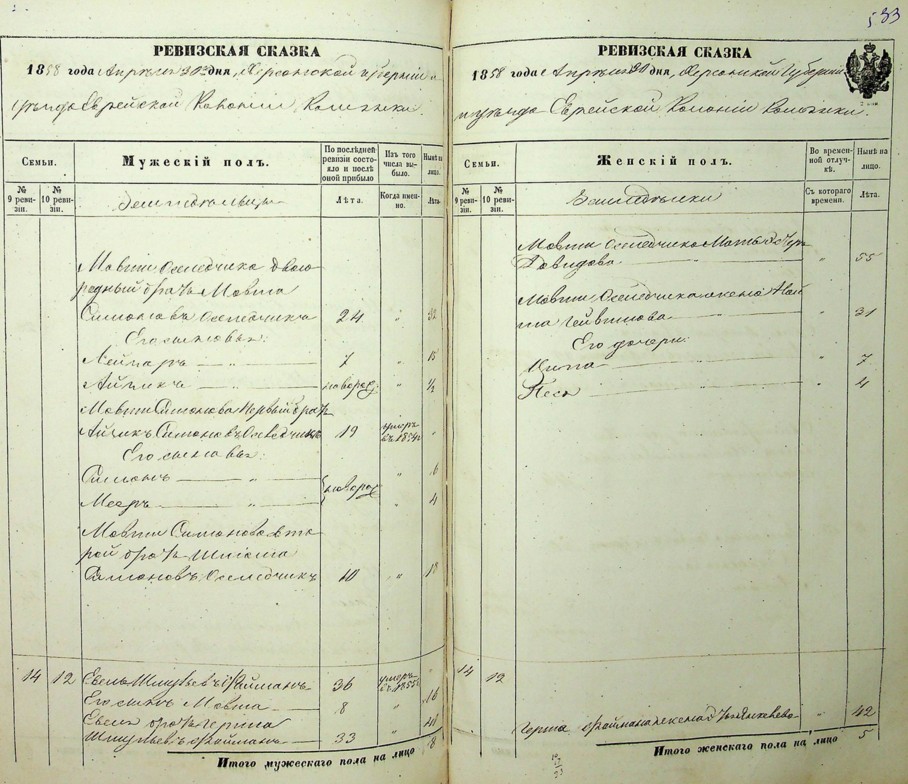 533
РЕВИЗСКАЯ СКАЗКА
1858 года Апреля 30 дня, Херсонской Губерніи и
уезда Еврейской Колоніи
Семьи.
Мужескій полъ.
По последней ревизіи состояло и послѣ оной прибыло
Изъ того числа выбыло.
Нынѣ на лицо.
№ 9 ревизіи.
№ 10 ревизіи.
Лѣта.
Когда именно.
Лѣта
Земледѣльцы
Мовши Оселедчика двою-
редный братъ Мовша
Симоновъ Оселедчикъ 24 " 32
Его сыновья:
Лейзаръ — " — 7 " 15
Айзикъ — " — новорож: " ½
Мовши Симонова первый братъ
Айзикъ Симоновъ Оселедчикъ 19 умеръ въ 1854 "
Его сыновья:
Симонъ — " — новорож " 6
Мееръ — " — 4
Мовши Симонова вто-
рой братъ Шліома
Симоновъ Оселедчикъ 10 " 18
14 12 Евель Шмульевъ Файманъ 36 умеръ въ 1855 "
Его сынъ Мовша — 8 " 16
Евеля братъ Гершка
Шмульевъ Файманъ 33 " 41
Итого мужескаго пола на лицо 8
РЕВИЗСКАЯ СКАЗКА
1858 года Апреля 30 дня, Херсонской Губерніи
и уезда Еврейской Колоніи
Семьи.
Женскій полъ.
Во временной отлучкѣ.
Нынѣ на лицо.
№ 9 ревизіи.
№ 10 ревизіи.
Съ котораго времени.
Лѣта.
Земледѣлки
Мовши Оселедчика Мать
Давидова — " 55
Мовши Оселедчика жена
— " 31
Его дочери
Ципа — " — " 7
Песя — " 4
14 12
жена " 42
Итого женскаго пола на лицо 5